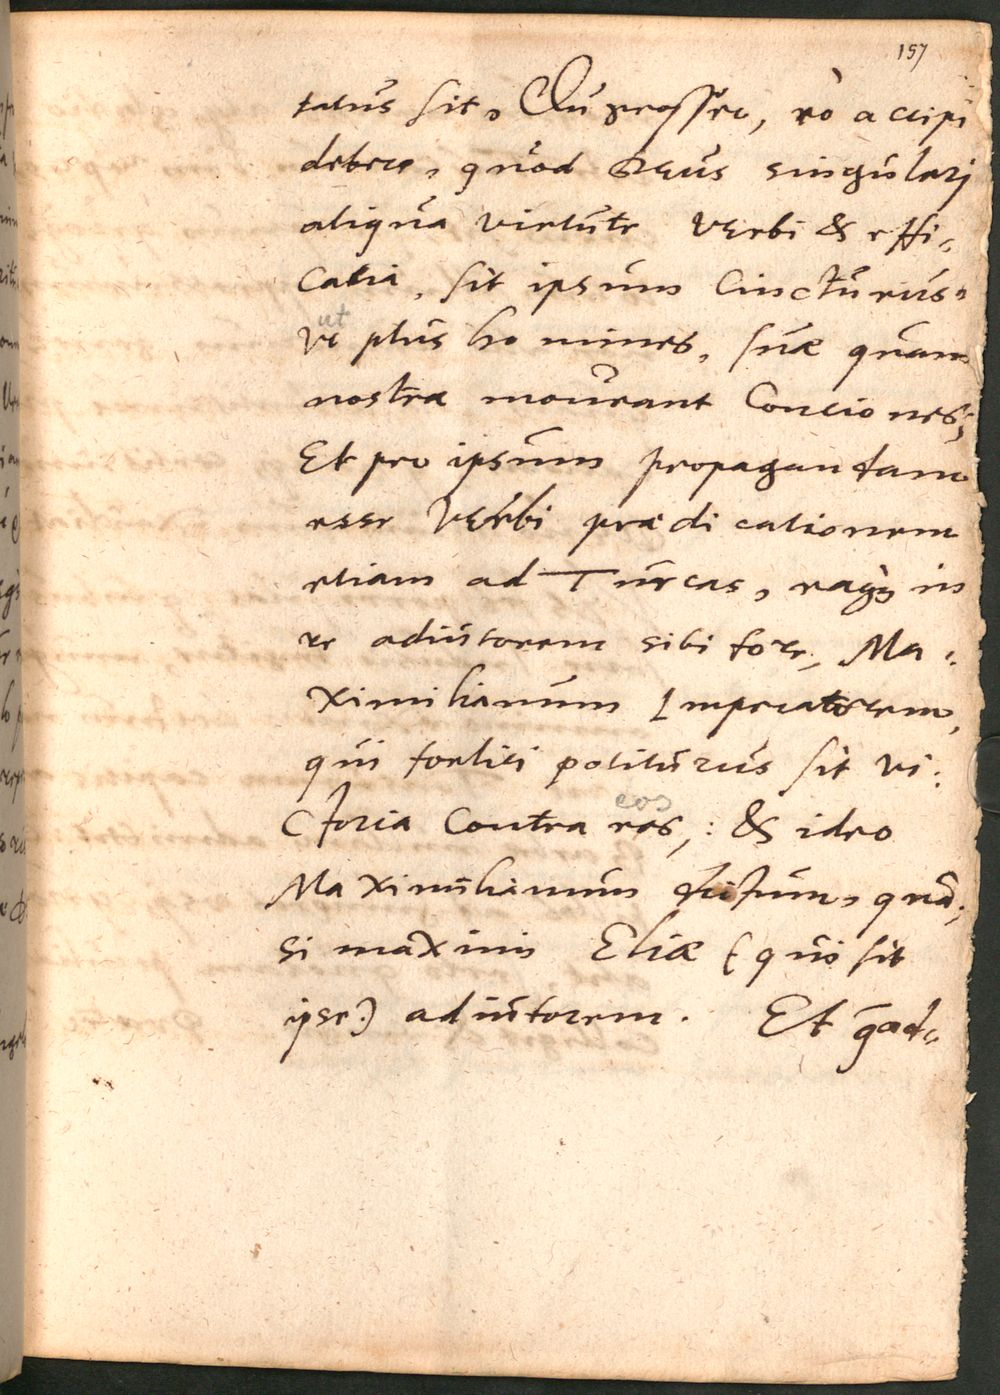 157
tatus sit, Qu professo, eò accipi
debere, quod Deus singulari
aliqua virtute Verbi & effi-
Catia, sit ipsum Cincturus,
ut
Vt plus homines, suæ quam
nostræ moveant Conciones;
Et per ipsum propagandam
esse Verbi prædicationem
etiam ad Turcas, eaq; in
re adiutorem sibi fore, Ma-
ximilianum Imperatorem,
qui forliti politurus sit vi-
eos
ctoria Contra eos,: & ideo
Maximilianum dictum, qua-
si maximi Eliæ (qui sit
ipse) adiutorem. Et quad-